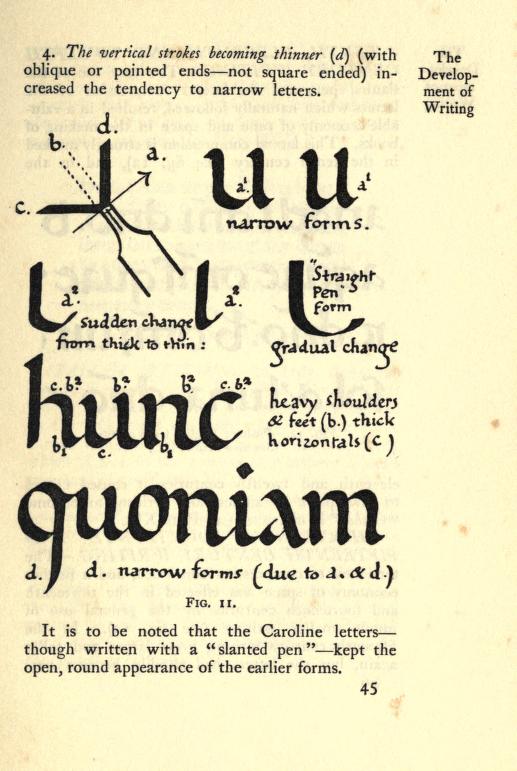 4. The vertical strokes becoming thinner (d) (with
oblique or pointed ends—not square ended) in-
creased the tendency to narrow letters.
The
Develop-
ment of
Writing
d.
b.
a.
c.
u u
a¹. a¹
narrow forms.
a² a²
sudden change
from thick to thin :
"Straight
Pen"
form
gradual change
c. b² b² b² c. b²
hunc
b₁ c. b₁
heavy shoulders
& feet (b.) thick
horizontals (c)
quoniam
d. d. narrow forms (due to a. & d.)
FIG. 11.
It is to be noted that the Caroline letters—
though written with a "slanted pen"—kept the
open, round appearance of the earlier forms.
45